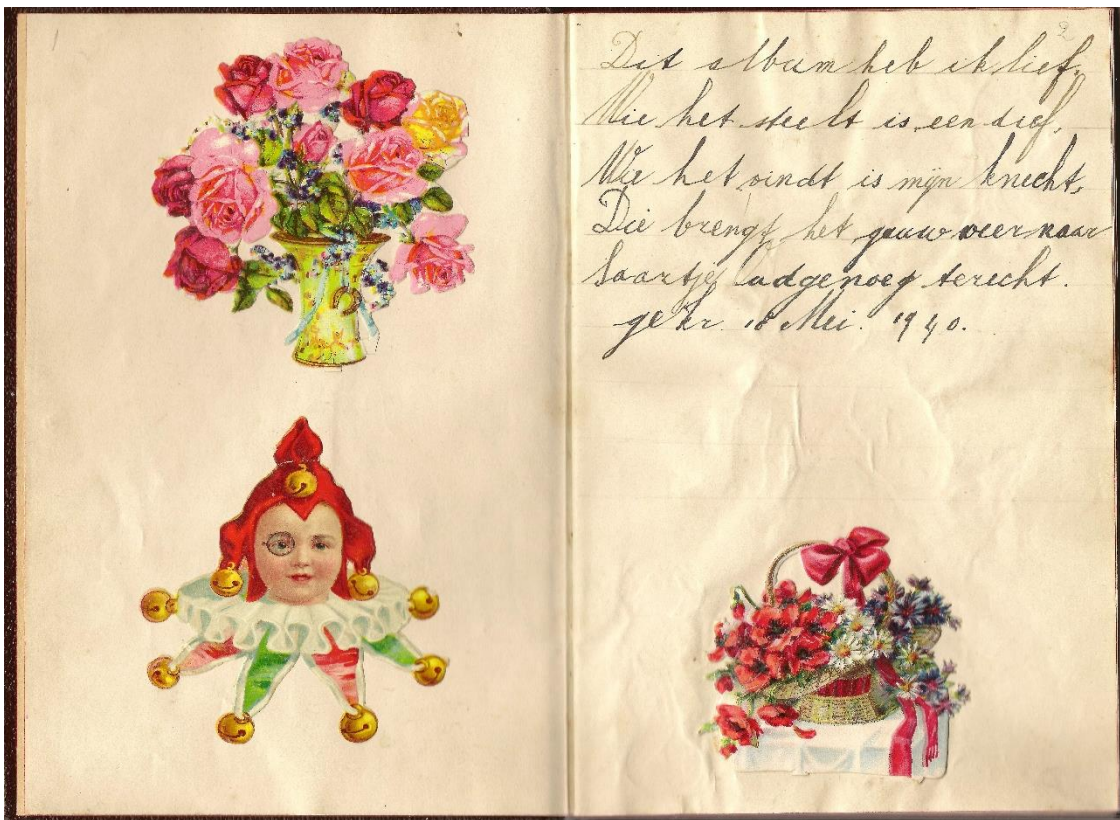 2
Dit album heb ik lief,
Wie het steelt is een dief,
Wie het vindt is mijn knecht,
Die brengt het gauw weer naar
Saartje Ladgenoeg terecht.
gekr. 18 Mei. 1940.